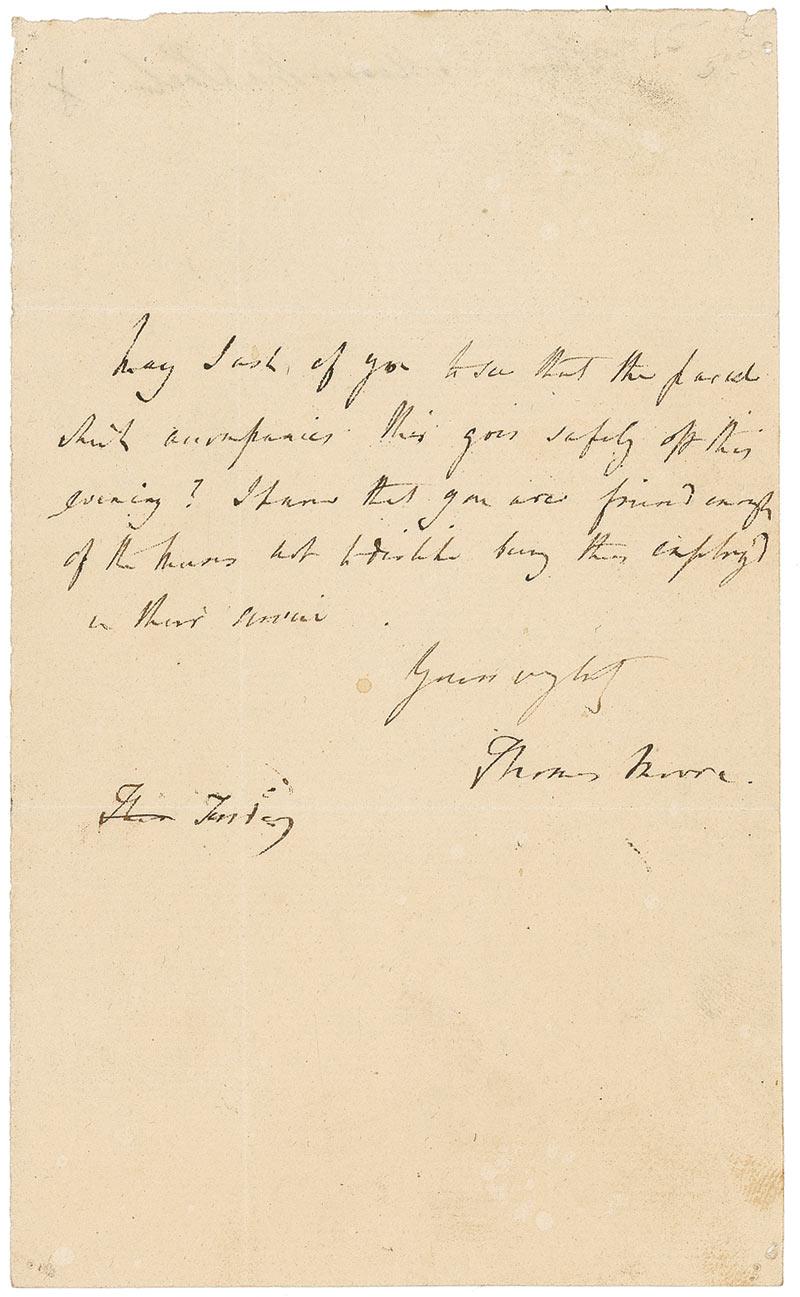 May I ask of you to see that the parcel
which accompanies this goes safely off this
evening? I know that you are friend enough
of the Muses not to dislike being thus employ'd
in their service.
Yours very truly
Thomas Moore.
Tuesday